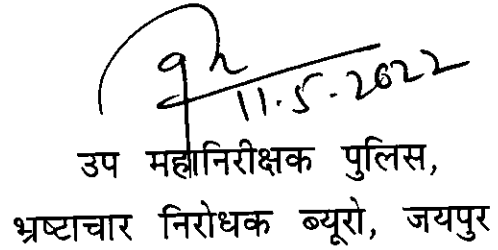 11.5.2022
उप महानिरीक्षक पुलिस,
भ्रष्टाचार निरोधक ब्यूरो, जयपुर